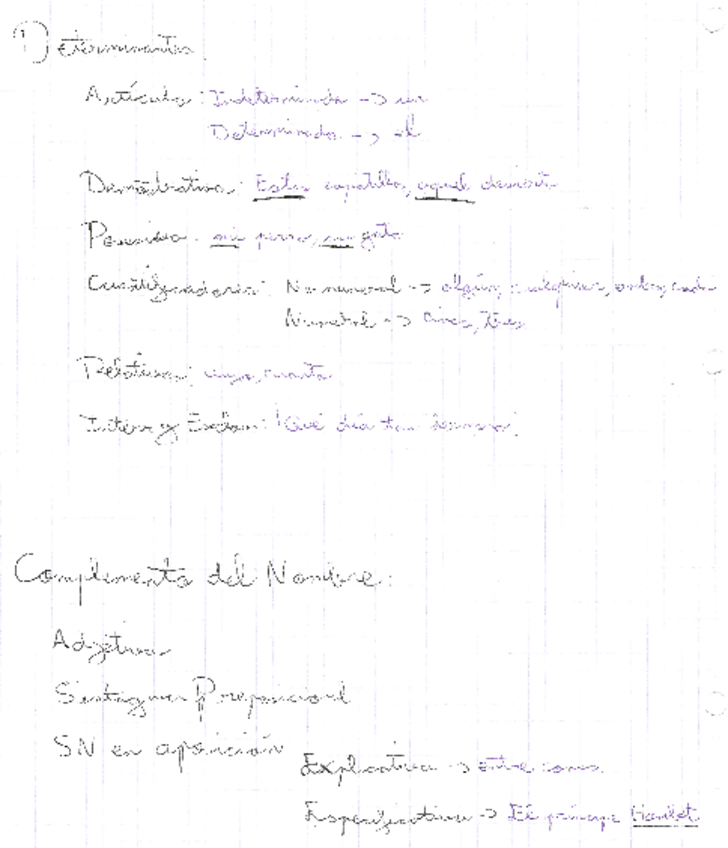 Determinantes
Artículo: Indeterminado -> un
Determinado -> el
Demostrativo: Estas zapatillas, aquel
Posesivo: mi perro, su gato
Cuantificadores: No numeral -> algún, cualquier, ambos, cada
Numeral -> Cinco, Tres
Relativos: cuyo, cuanto
Interr y Exclam: ¡Qué día tan hermoso!
Complemento del Nombre:
Adjetivo
Sintagma Preposicional
SN en aposición
Explicativa -> entre comas
Especificativa -> El príncipe Hamlet